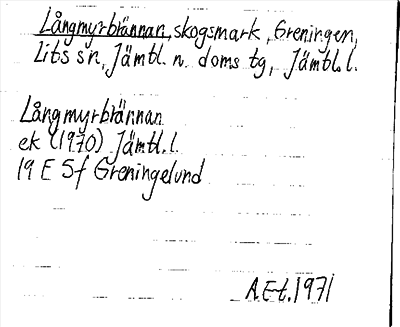 Långmyrbrännan, skogsmark, Greningen,
Lits sn, Jämtl. n. doms tg, Jämtl. l.
Långmyrbrännan
ek (1970) Jämtl. l.
19 E 5f Greningelund
A.E-t. 1971